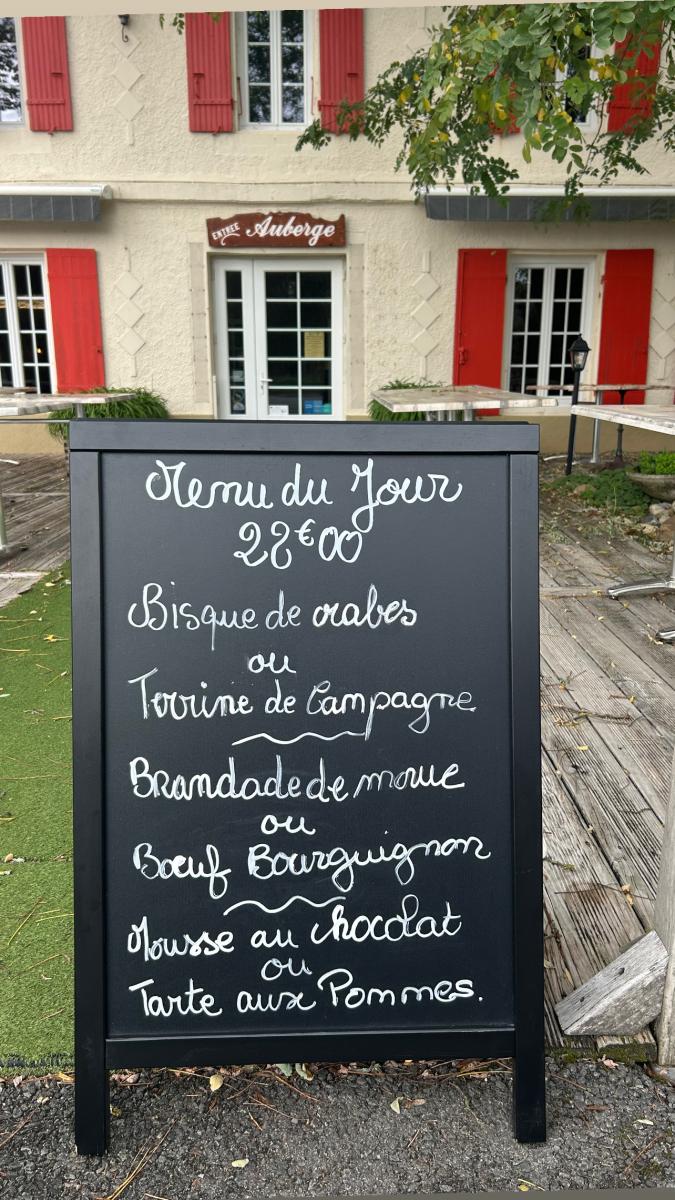 ENTREE Auberge
Menu du Jour
22€00
Bisque de crabes
ou
Terrine de Campagne
Brandade de morue
ou
Bœuf Bourguignon
Mousse au chocolat
ou
Tarte aux Pommes.